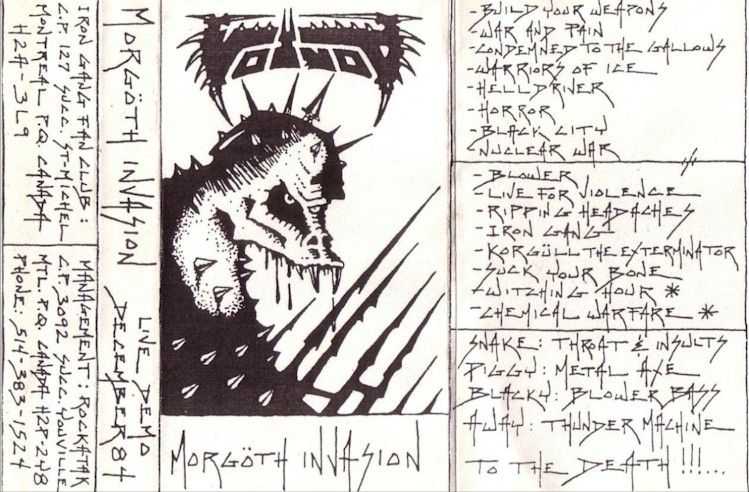 IRON GANG FAN CLUB :
C.P. 127 SUCC. ST-MICHEL
MONTREAL P.Q. CANADA
H2A-3L9
MANAGEMENT : ROCKATAK
C.P. 3092 SUCC. YOUVILLE
MTL. P.Q. CANADA H2P-2A8
PHONE: 514-383-1524
MORGÖTH INVASION
LIVE DEMO
DECEMBER 84
VOIVOD
MORGÖTH INVASION
-BUILD YOUR WEAPONS
-WAR AND PAIN
-CONDEMNED TO THE GALLOWS
-WARRIORS OF ICE
-HELLDRIVER
-HORROR
-BLACK CITY
-NUCLEAR WAR
-BLOWER
-LIVE FOR VIOLENCE
-RIPPING HEADACHES
-IRON GANG
-KORGÜLL THE EXTERMINATOR
-SUCK YOUR BONE
-WITCHING HOUR *
-CHEMICAL WARFARE *
SNAKE: THROAT & INSULTS
PIGGY: METAL AXE
BLACKY: BLOWER BASS
AWAY: THUNDER MACHINE
TO THE DEATH !!!...